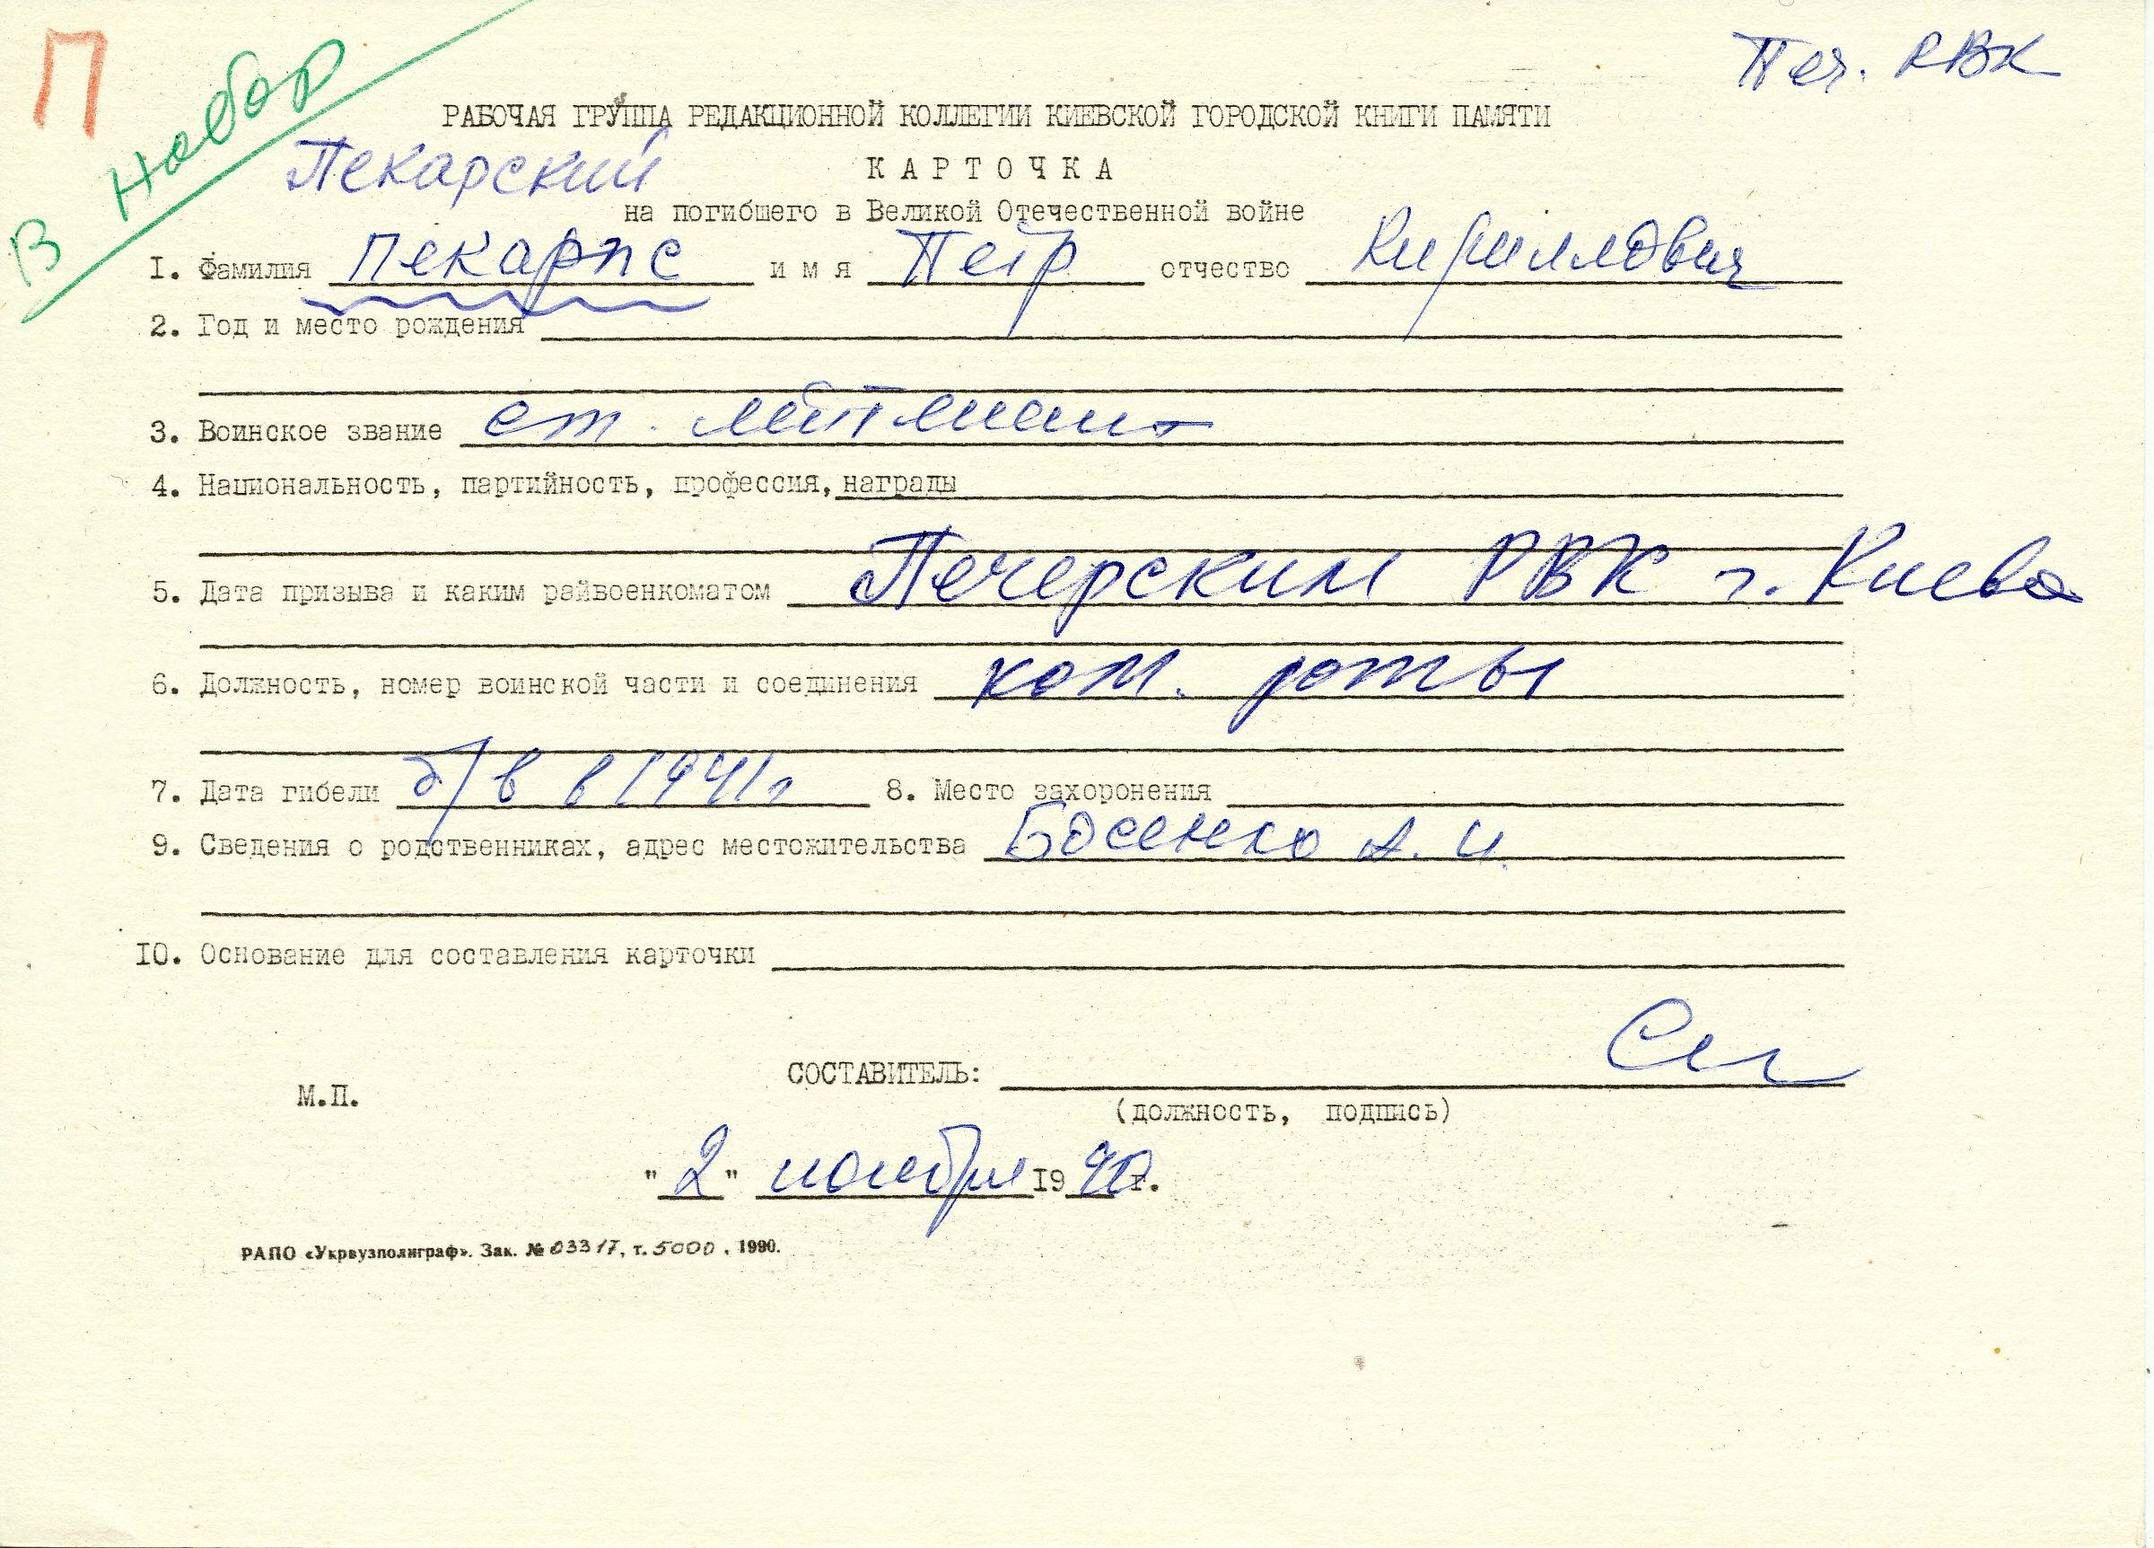 П
В набор
Печ. РВК
РАБОЧАЯ ГРУППА РЕДАКЦИОННОЙ КОЛЛЕГИИ КИЕВСКОЙ ГОРОДСКОЙ КНИГИ ПАМЯТИ
Пекарский
КАРТОЧКА
на погибшего в Великой Отечественной войне
I. Фамилия Пекарпс имя Петр отчество Кириллович
2. Год и место рождения
3. Воинское звание ст. лейтенант
4. Национальность, партийность, профессия, награды
5. Дата призыва и каким райвоенкоматом Печерским РВК г. Киева
6. Должность, номер воинской части и соединения ком. роты
7. Дата гибели б/в в 1941г 8. Место захоронения
9. Сведения о родственниках, адрес местожительства Босенко А. И.
IO. Основание для составления карточки
СОСТАВИТЕЛЬ:
М.П.
(должность, подпись)
"2" ноября 1990г.
РАПО «Укрвузполиграф». Зак. № 03317, т. 5000, 1990.